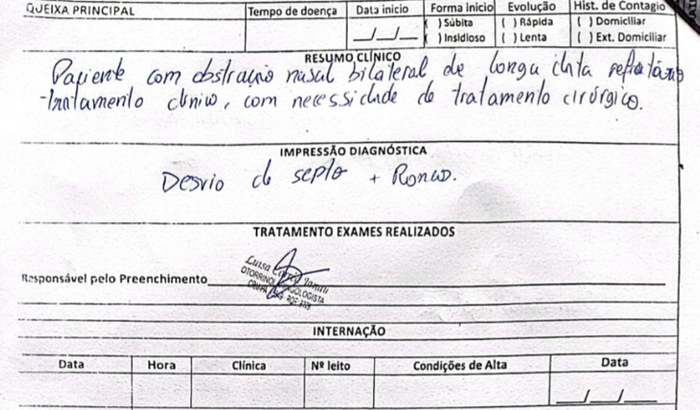 QUEIXA PRINCIPAL
Tempo de doença
Data inicio
__/__/__
Forma inicio
( ) Súbita
( ) Insidioso
Evolução
( ) Rápida
( ) Lenta
Hist. de Contagio
( ) Domiciliar
( ) Ext. Domiciliar
RESUMO CLÍNICO
Paciente com obstrução nasal bilateral de longa data refratário
tratamento clínico, com necessidade de tratamento cirúrgico.
IMPRESSÃO DIAGNÓSTICA
Desvio de septo + Ronco.
TRATAMENTO EXAMES REALIZADOS
Responsável pelo Preenchimento
Luisa
INTERNAÇÃO
Data Hora Clínica Nº leito Condições de Alta Data
__/__/__